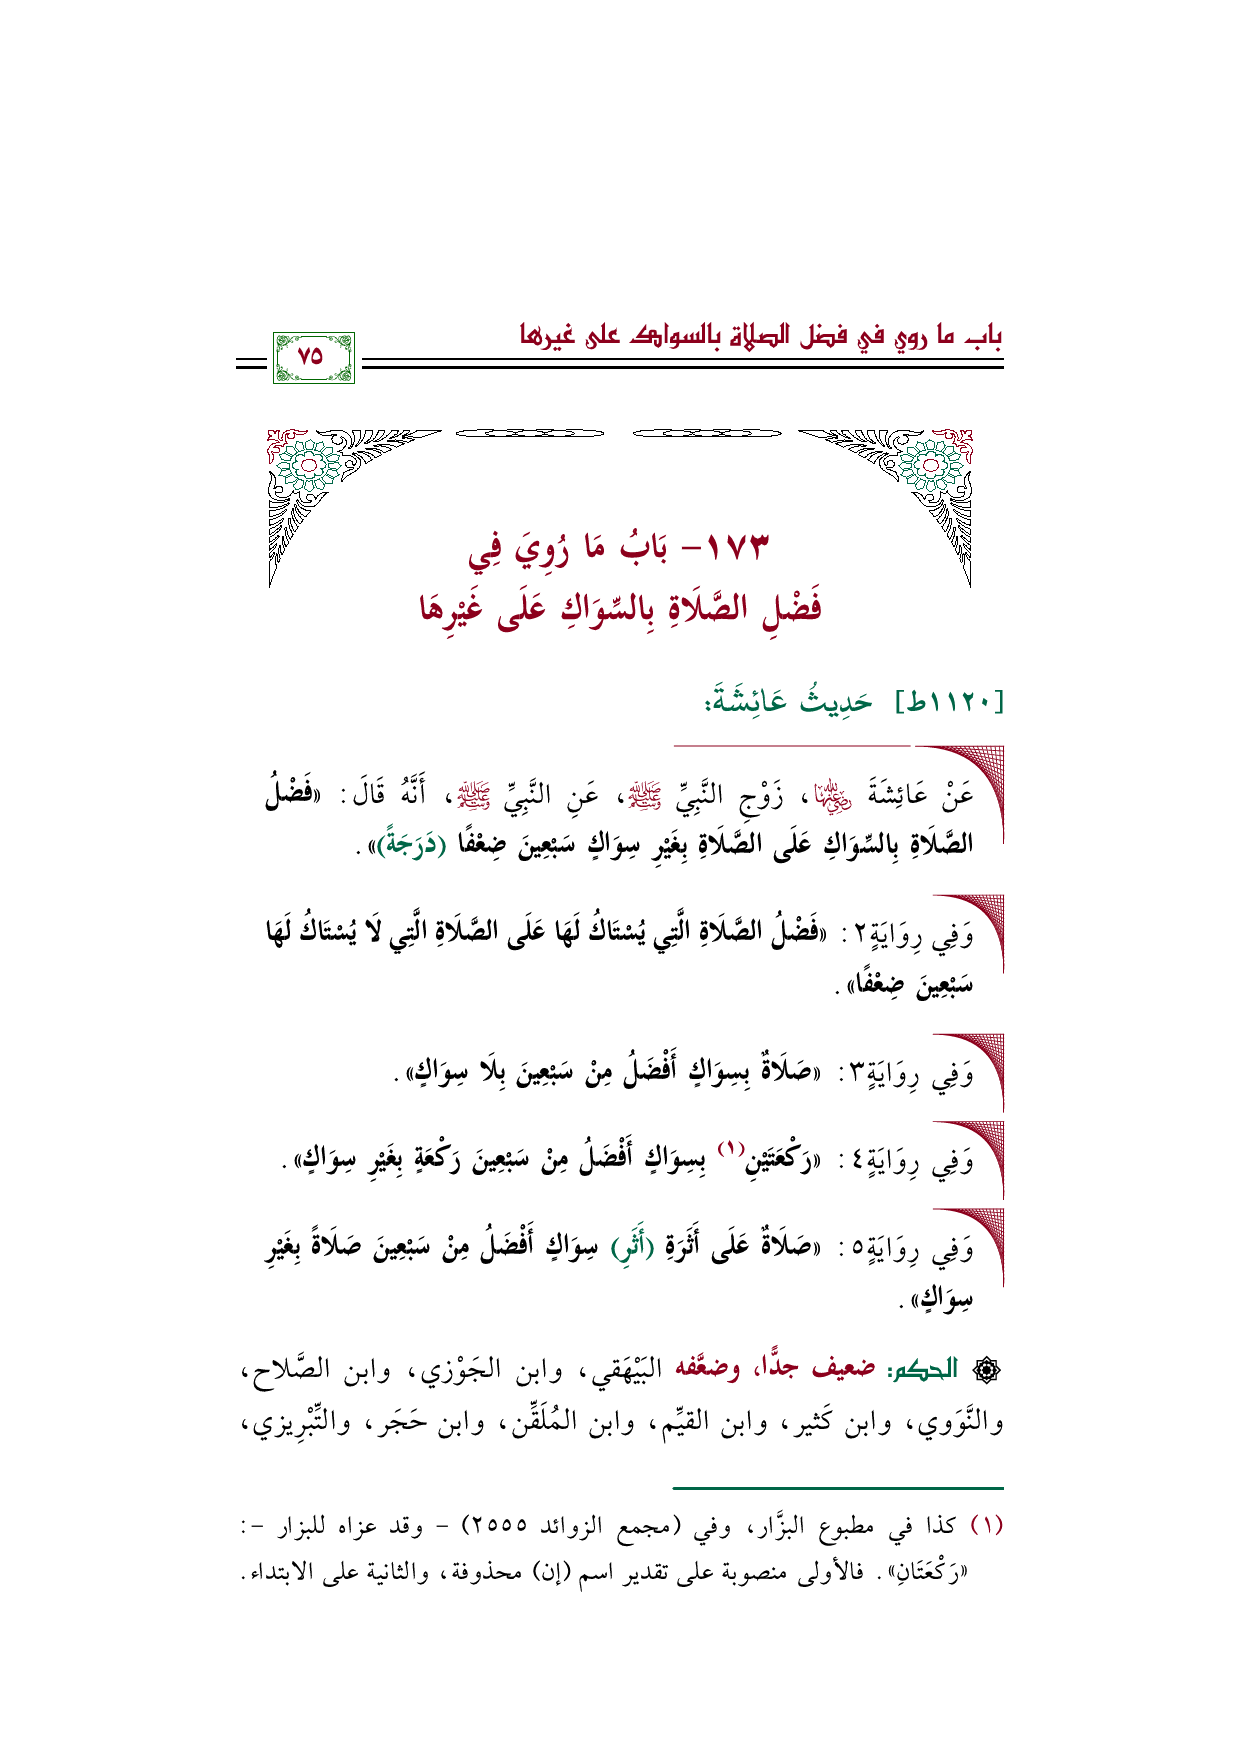 باب ما روي في فضل الصلاة بالسواك على غيرها
٧٥
١٧٣- بَابُ مَا رُوِيَ فِي
فَضْلِ الصَّلَاةِ بِالسِّوَاكِ عَلَى غَيْرِهَا
[١١٢٠ط] حَدِيثُ عَائِشَةَ:
عَنْ عَائِشَةَ رضي الله عنها، زَوْجِ النَّبِيِّ ﷺ، عَنِ النَّبِيِّ ﷺ، أَنَّهُ قَالَ: «فَضْلُ
الصَّلَاةِ بِالسِّوَاكِ عَلَى الصَّلَاةِ بِغَيْرِ سِوَاكٍ سَبْعِينَ ضِعْفًا (دَرَجَةً)».
وَفِي رِوَايَةٍ٢: «فَضْلُ الصَّلَاةِ الَّتِي يُسْتَاكُ لَهَا عَلَى الصَّلَاةِ الَّتِي لَا يُسْتَاكُ لَهَا
سَبْعِينَ ضِعْفًا».
وَفِي رِوَايَةٍ٣: «صَلَاةٌ بِسِوَاكٍ أَفْضَلُ مِنْ سَبْعِينَ بِلَا سِوَاكٍ».
وَفِي رِوَايَةٍ٤: «رَكْعَتَيْنِ(١) بِسِوَاكٍ أَفْضَلُ مِنْ سَبْعِينَ رَكْعَةٍ بِغَيْرِ سِوَاكٍ».
وَفِي رِوَايَةٍ٥: «صَلَاةٌ عَلَى أَثَرَةِ (أَثَرِ) سِوَاكٍ أَفْضَلُ مِنْ سَبْعِينَ صَلَاةً بِغَيْرِ
سِوَاكٍ».
الحكم: ضعيف جدًّا، وضعَّفه البَيْهَقي، وابن الجَوْزي، وابن الصَّلاح،
والنَّوَوي، وابن كَثير، وابن القيِّم، وابن المُلَقِّن، وابن حَجَر، والتِّبْرِيزي،
(١) كذا في مطبوع البزَّار، وفي (مجمع الزوائد ٢٥٥٥) - وقد عزاه للبزار -:
«رَكْعَتَانِ». فالأولى منصوبة على تقدير اسم (إن) محذوفة، والثانية على الابتداء.